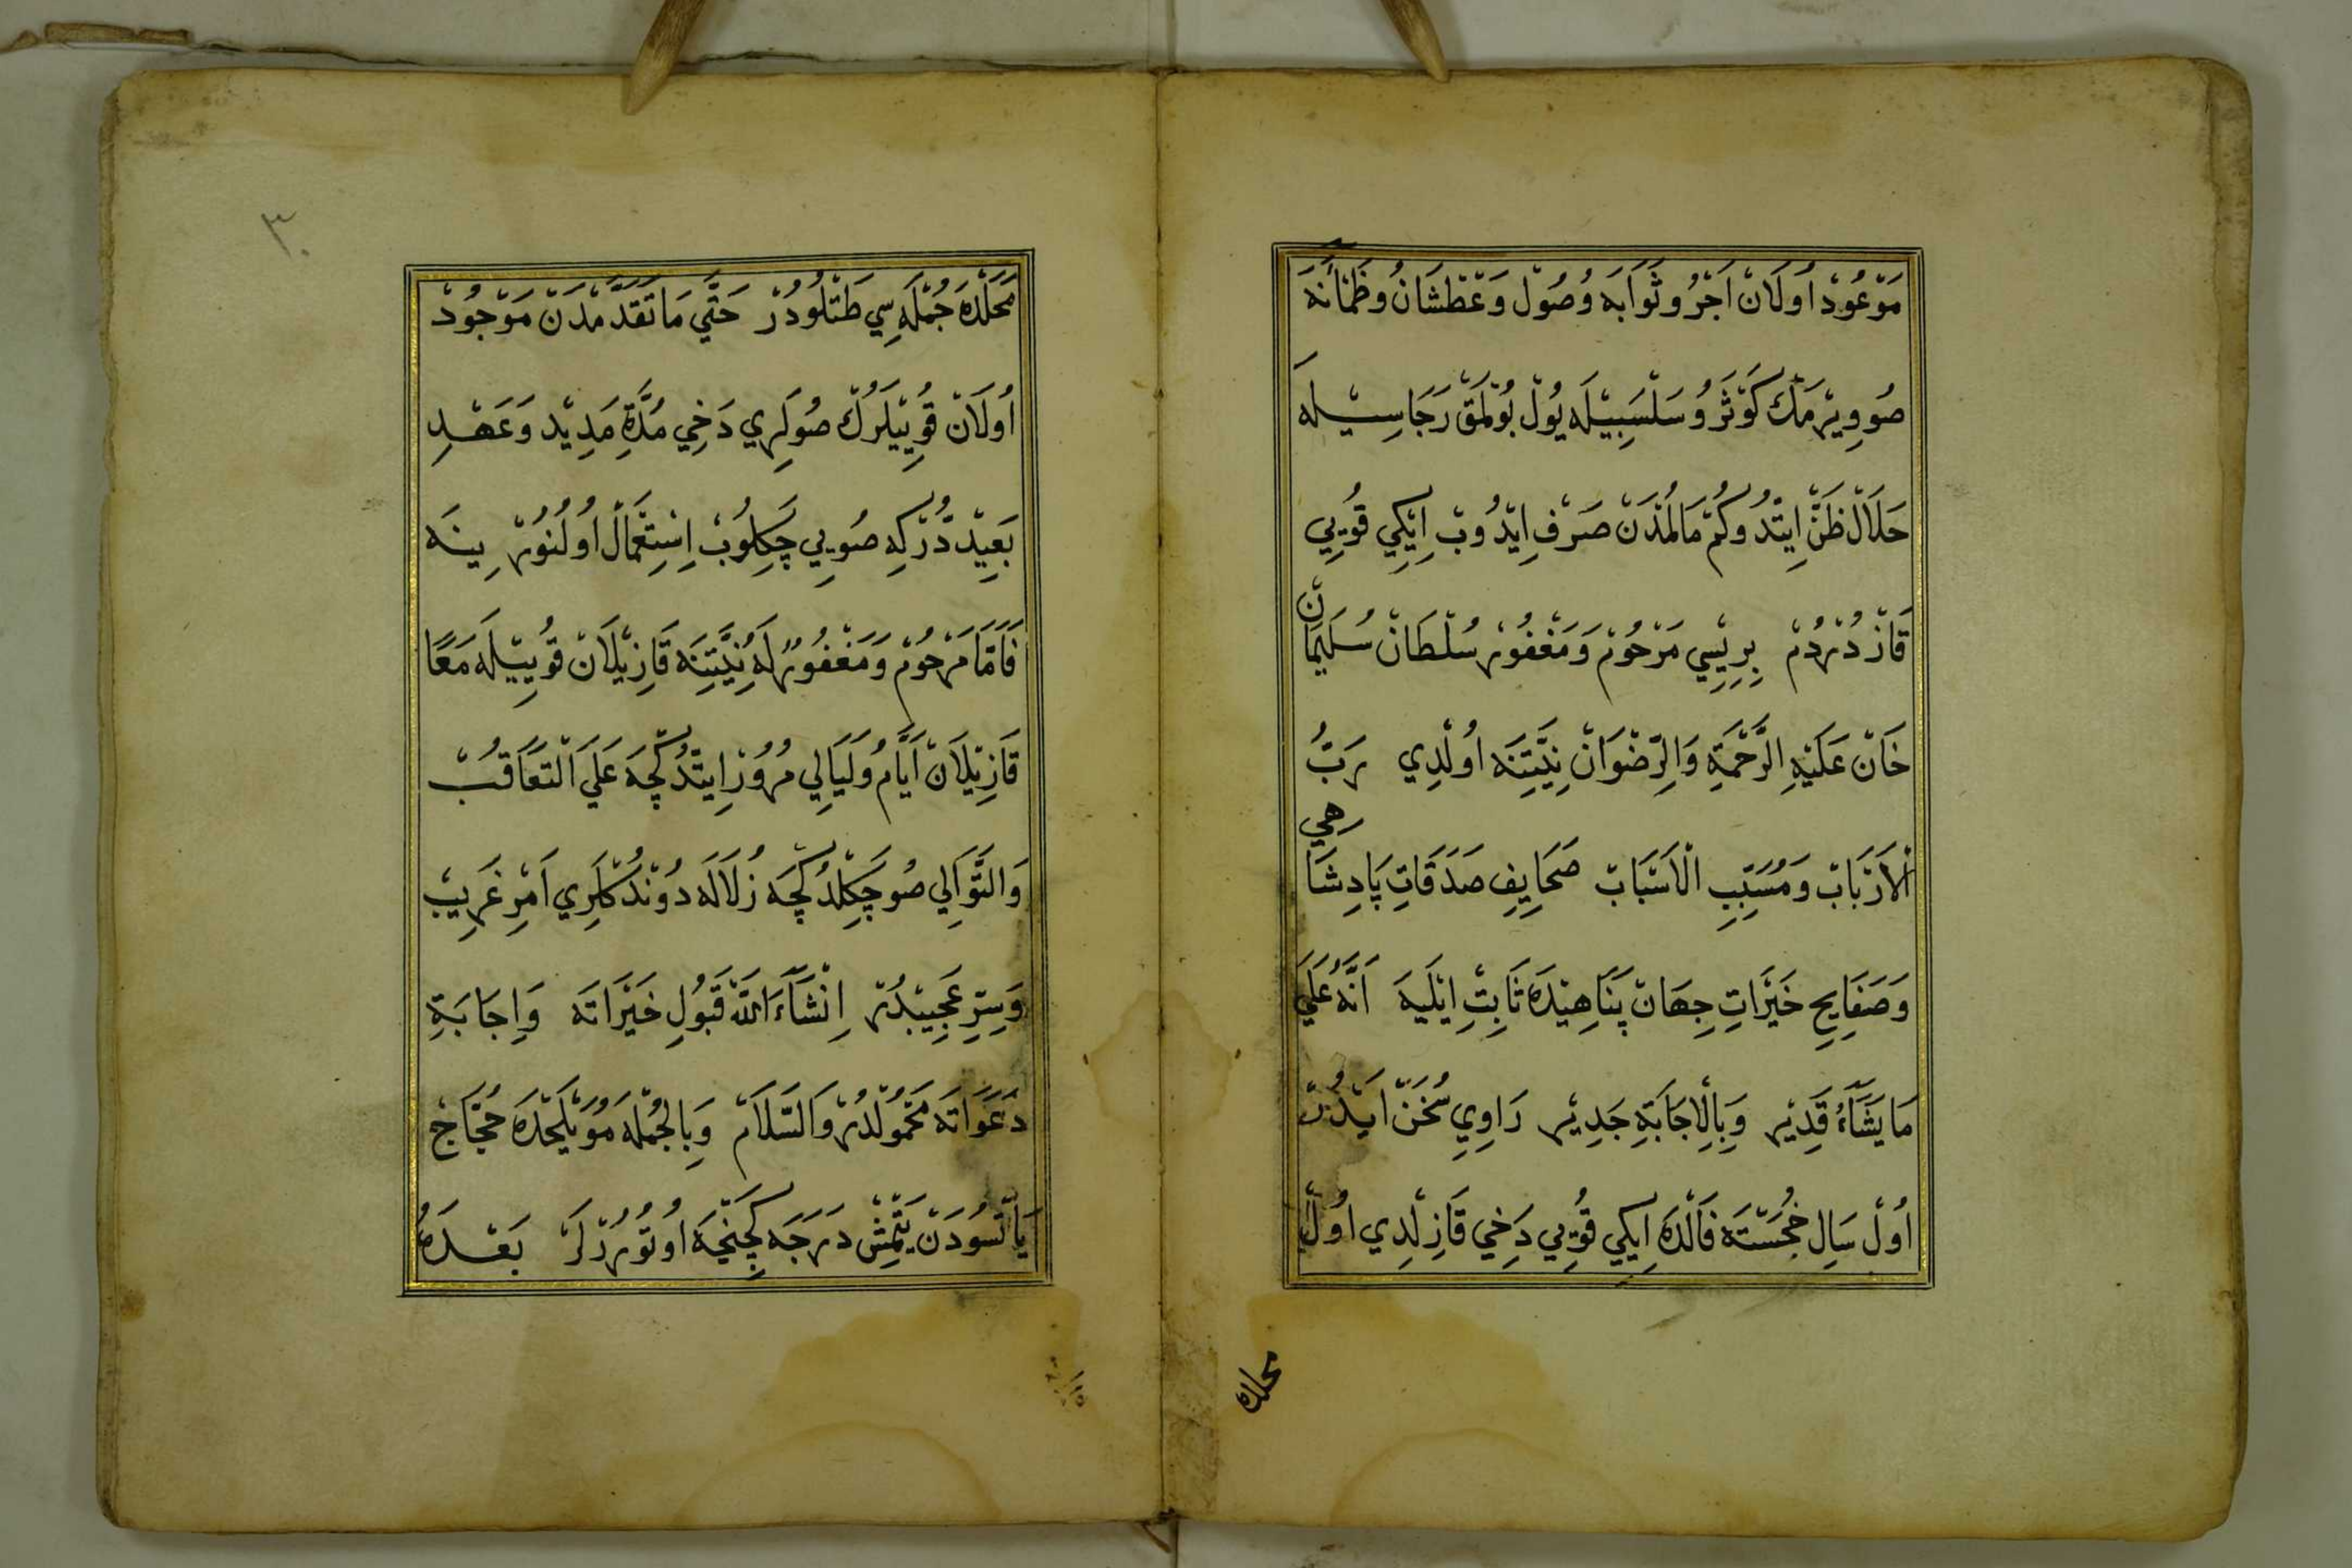 مَوْعُودْ اُولَانْ اَجْرُ وثَوَابَه وُصُولْ وَعَطْشَانُ وظَمْأَنَه
صُو وِيْرْمَكْ كَوْثَرُ وُ سَلْسَبِيْلَه يُولْ بُولْمَقْ رَجَاسِيلَه
حَلَالْ ظَنّْ اِيتْدُوكُمْ مَالُمْدَنْ صَرْفِ اِيْدُوبْ اِيْكِي قُويِي
قَازْدُرْدُمْ بِرِيْسِي مَرْحُومْ وَمَغْفُورْ سُلْطَانْ سُلَيْمَانْ
خَانْ عَلَيْهِ الرَّحْمَةِ وَالرِّضْوَانْ نِيَّتِنَه اُولْدِي رَبُّ
الْاَرْبَابْ وَمُسَبِّبِ الْاَسْبَابْ صَحَايِفِ صَدَقَاتِ پَادِشَاهِي
وَصَفَايِحِ خَيْرَاتِ جِهَانْ پَنَاهِيْدَه ثَابِتْ اِيْلَيَه اَنَّهُ عَلَى
مَا يَشَآءُ قَدِيْر وَبِالْاِجَابَةِ جَدِيْر رَاوِيِ سُخَنْ اَيْدُرْ
اُولْ سَالِ خُجَسْتَه فَالْدَه اِيكِي قُويِي دَخِي قَازِلْدِي اُولْ
محلده
٣٠
مَحَلْدَه جُمْلَه سِي طَتْلُودُرْ حَتَّى مَا تَقَدَّمْدَنْ مَوْجُودْ
اُولَانْ قُوِييْلَرُكْ صُولَرِي دَخِي مُدَّةِ مَدِيْد وَعَهْدِ
بَعِيدْدُرْ كِه صُويِي چَكِلُوبْ اِسْتِعْمَالْ اُولُنُورْ يِينَه
فَاَمَّا مَرْحُومْ وَمَغْفُورٌ لَهُ نِيَّتِنَه قَازِيْلَانْ قُويِيْلَه مَعًا
قَازِيْلَانْ اَيَّامُ وَلَيَالِي مُرُورْ اِيتْدُكْچَه عَلَى التَّعَاقُبْ
وَالتَّوَالِي صُو چَكِلْدُكْچَه زُلَالَه دُونْدُكْلَرِي اَمْرِ غَرِيبْ
وَسِرِّ عَجِيبْدُرْ اِنْشَآءَ اللّٰهْ قَبُولِ خَيْرَاتَه وَاِجَابَةِ
دَعَوَاتَه مَحْمُولْدُرْ وَالسَّلَامْ وَبِالْجُمْلَه مُوَيْلَحْدَه حُجَّاجْ
يَاتْسُودَنْ يَتْمِشْ دَرَجَه كِچِنْجَه اُوتُورُرْلَرْ بَعْدَهُ